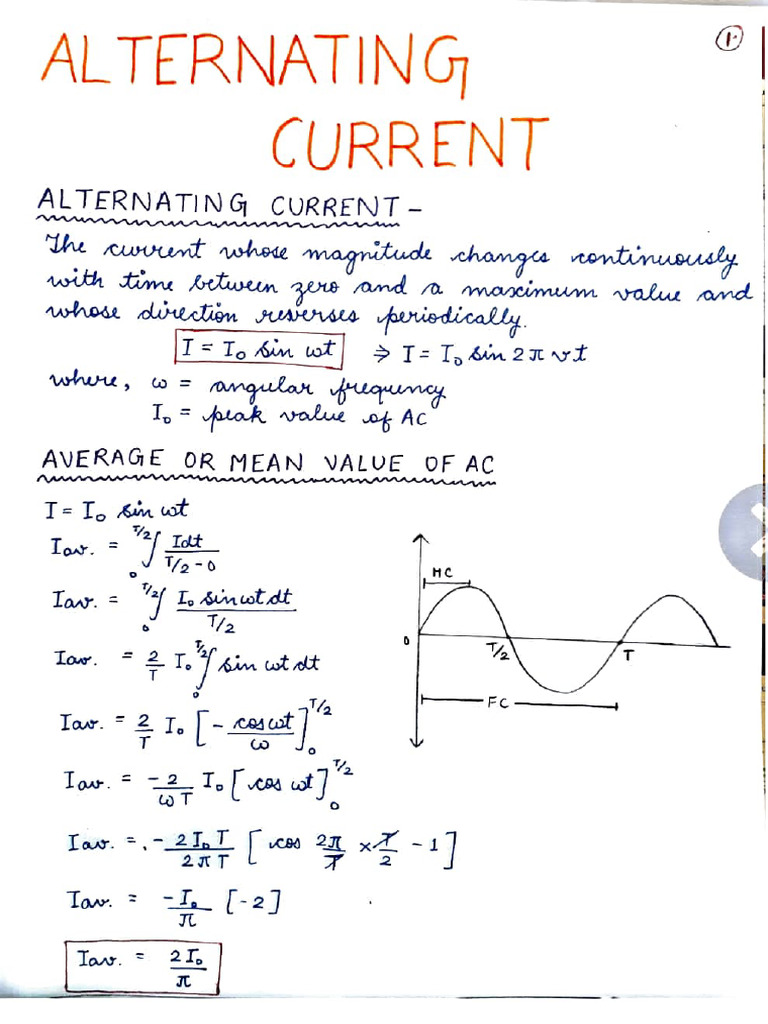 1.
ALTERNATING
CURRENT
ALTERNATING CURRENT –
The current whose magnitude changes continuously
with time between zero and a maximum value and
whose direction reverses periodically.
I = I₀ sin ωt ⇒ I = I₀ sin 2πνt
where, ω = angular frequency
I₀ = peak value of AC
AVERAGE OR MEAN VALUE OF AC
I = I₀ sin ωt
Iav. = ₀∫^T/2 Idt / (T/2 - 0)
Iav. = ₀∫^T/2 I₀ sin ωt dt / (T/2)
Iav. = 2/T I₀ ₀∫^T/2 sin ωt dt
Iav. = 2/T I₀ [- cos ωt / ω]₀^T/2
Iav. = -2/ωT I₀ [cos ωt]₀^T/2
Iav. = - 2I₀T / 2πT [cos 2π/T × T/2 - 1]
Iav. = -I₀/π [-2]
Iav. = 2I₀/π
HC
0
T/2
T
FC